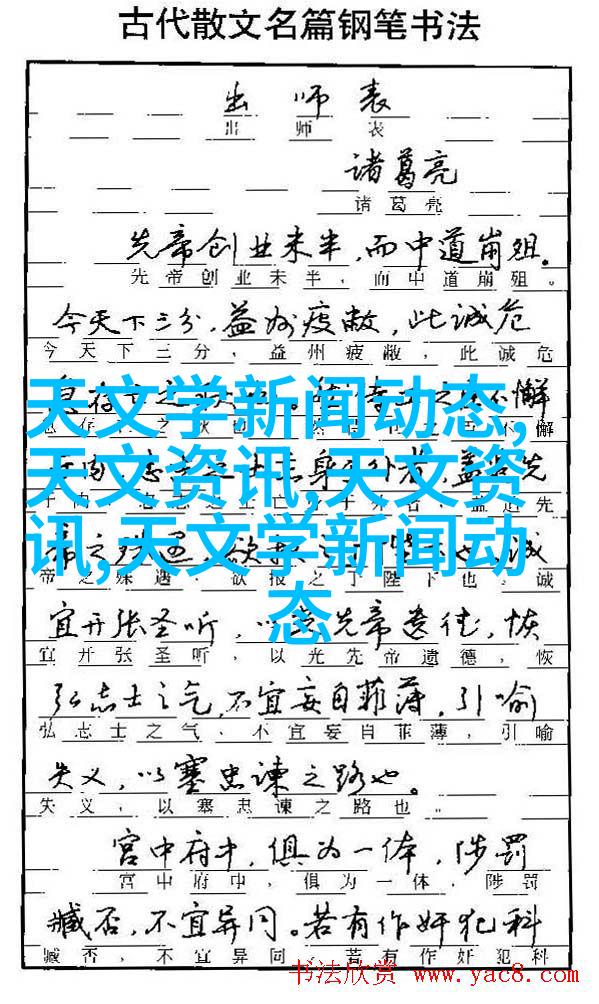 古代散文名篇钢笔书法
出 师 表
出 师 表
诸葛亮
诸葛亮
先帝创业未半,而中道崩殂。
先帝创业未半,而中道崩殂。
今天下三分,益州疲敝,此诚危
今天下三分,益州疲敝,此诚危
天文学新闻动态,
天文资讯,天文资
讯,天文学新闻动
态
懈
懈
身 外者,盖 先
先
帝之殊遇,欲报 也,诚
帝之殊遇,欲报之于陛下也,诚
宜开张圣听,以光先帝遗德,恢
宜开张圣听,以光先帝遗德,恢
弘志士之气,不宜妄自菲薄,引喻
弘志士之气,不宜妄自菲薄,引喻
失义,以塞忠谏之路也。
失义,以塞忠谏之路也。
宫中府中,俱为一体,陟罚
宫中府中,俱为一体,陟罚
臧否,不宜异同。若有作奸犯科
臧否,不宜异同。若有作奸犯科
书法欣赏 www.yac8.com